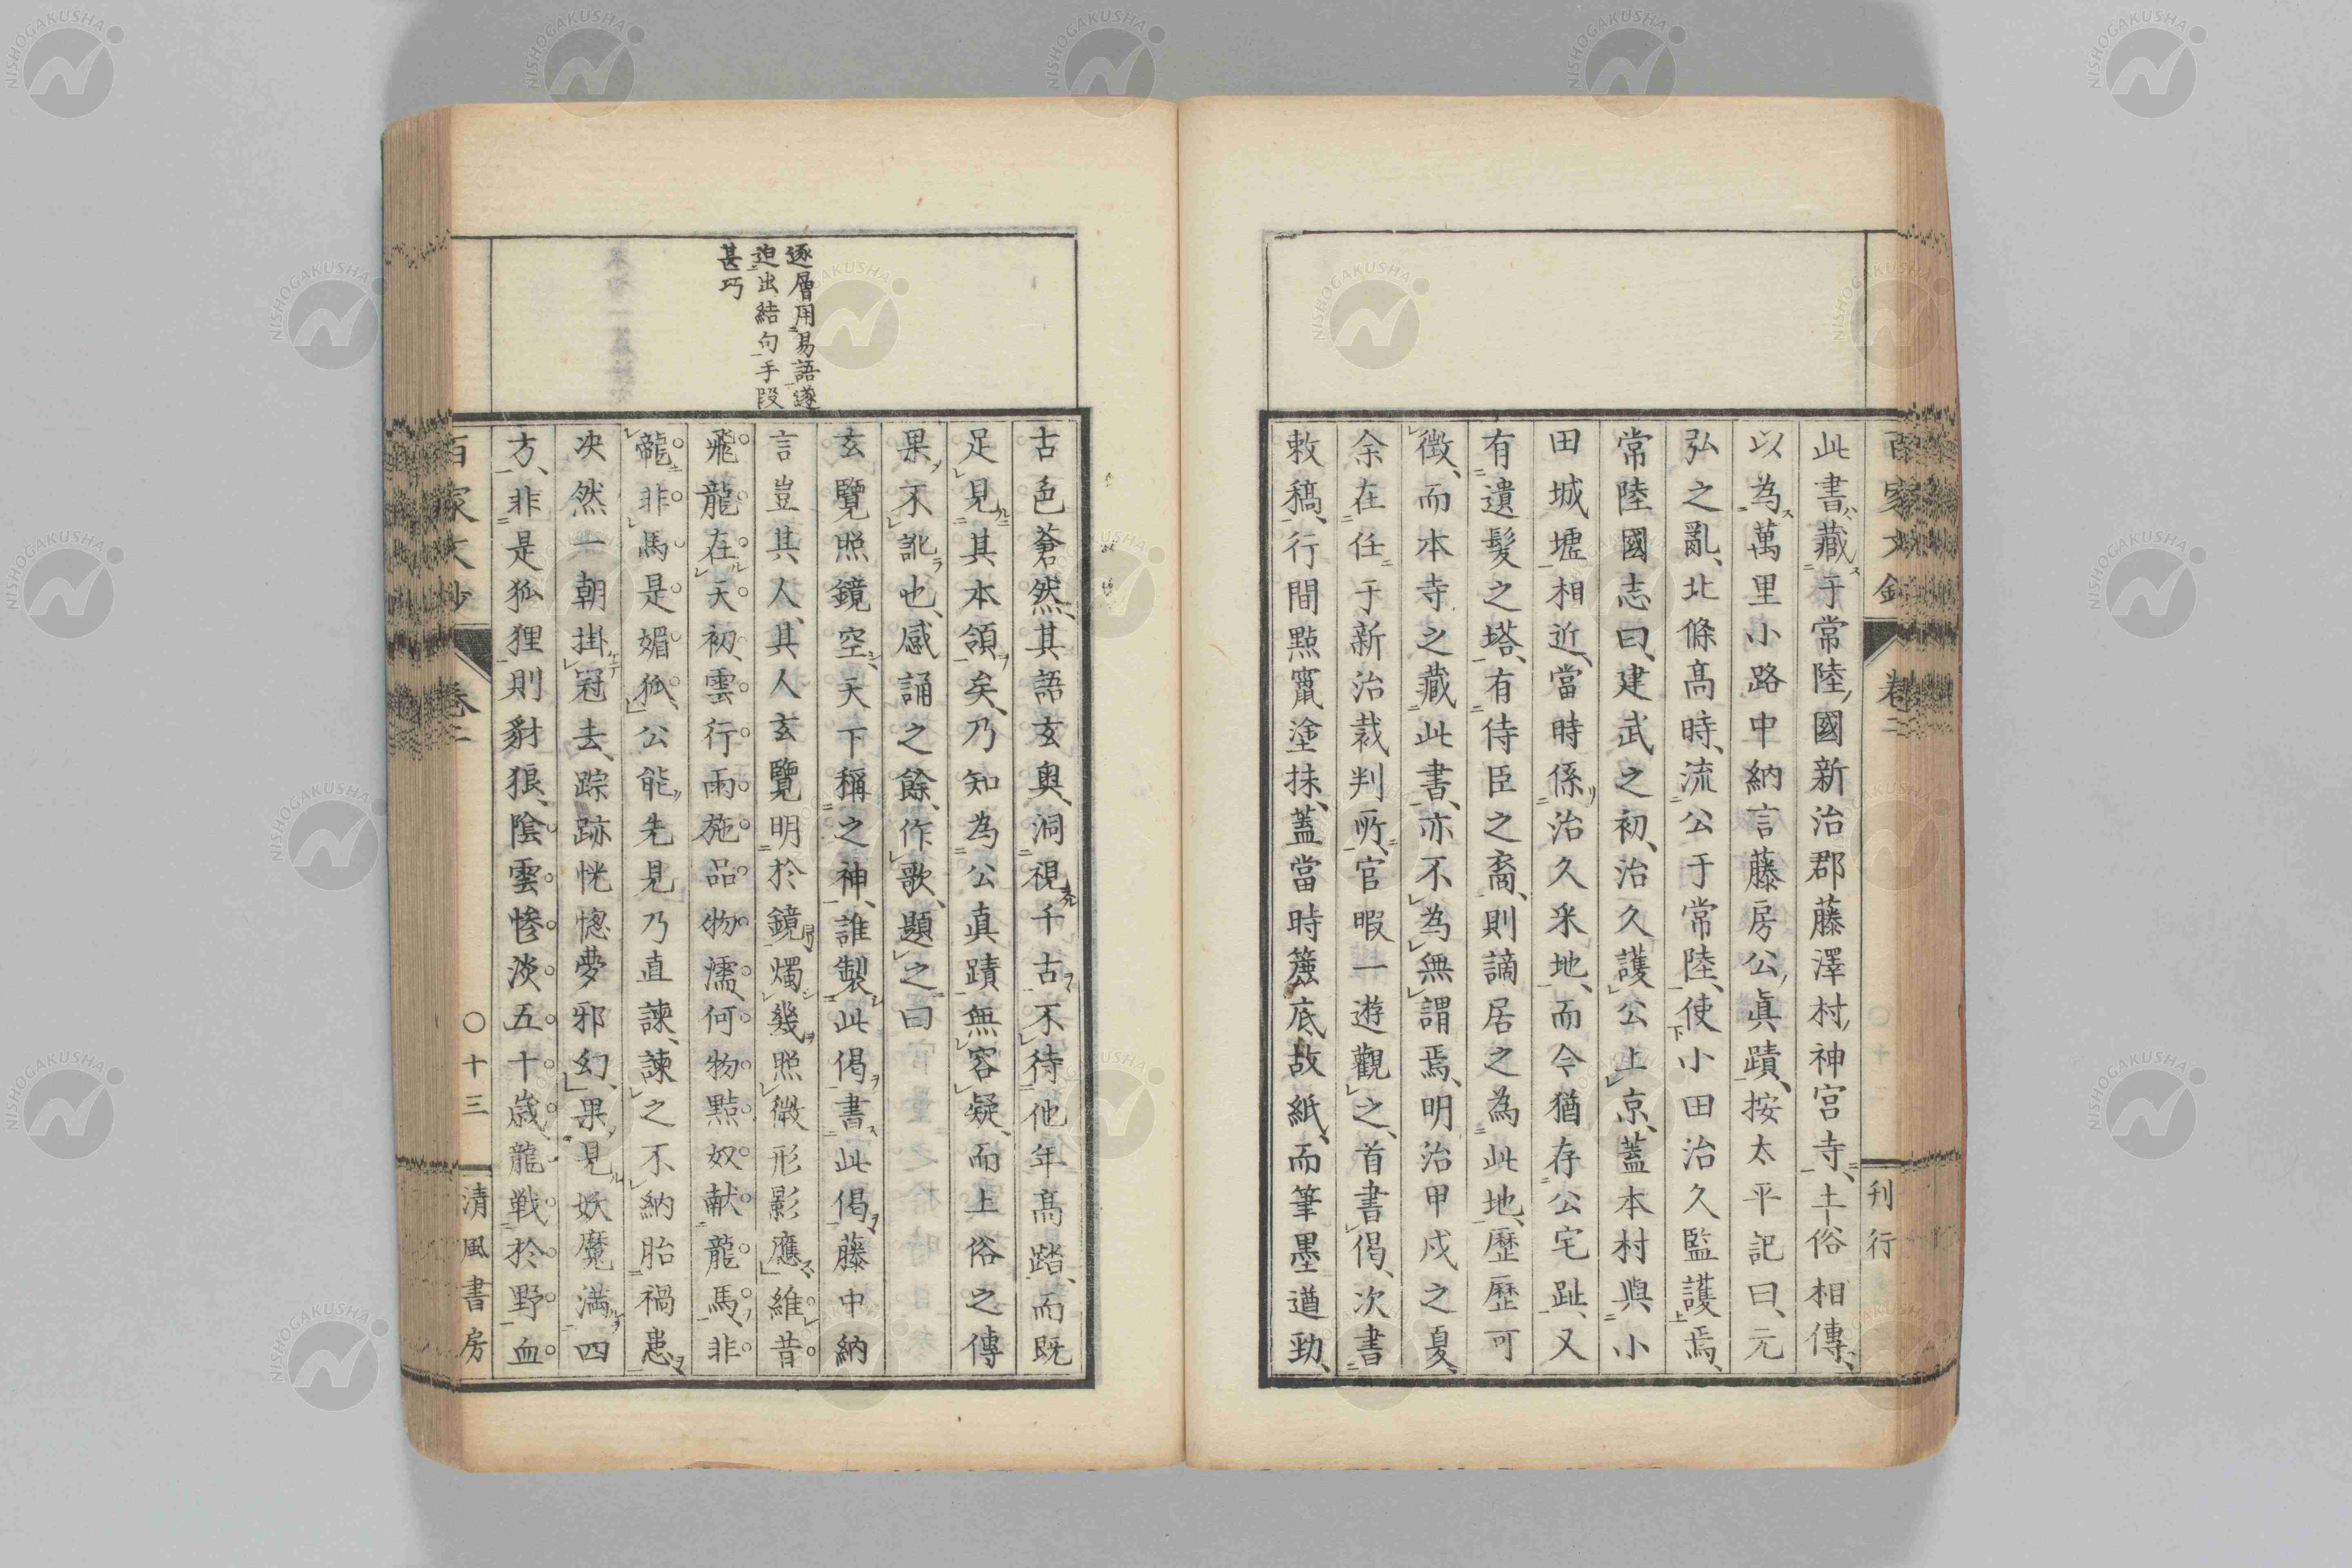 此書、藏于常陸國新治郡藤澤村神宮寺、土俗相傳、
以為萬里小路中納言藤房公眞蹟、按太平記曰、元
弘之亂、北條高時、流公于常陸、使小田治久監護焉、
常陸國志曰、建武之初、治久護公上京、蓋本村與小
田城墟相近、當時係治久釆地、而今猶存公宅趾、又
有遺髮之塔、有侍臣之裔、則謫居之為此地、歷歷可
徵、而本寺之藏此書、亦不為無謂焉、明治甲戌之夏、
余在任于新治裁判所、官暇一遊觀之、首書偈、次書
敕稿、行間點竄塗抹、蓋當時簏底故紙、而筆墨遒勁、
刊行
古色蒼然、其語玄奧、洞視千古、不待他年高踏、而既
足見其本領矣、乃知為公真蹟無容疑、而土俗之傳
果不訛也、感誦之餘、作歌、題之曰
玄覽照鏡空、天下稱之神、誰製此偈書此偈藤中納
言豈其人、其人玄覽明於鏡燭幾照微形影應維昔
飛龍在天初、雲行雨施品物濡、何物點奴献龍馬、非
龍非馬是媚狐、公能先見乃直諫、諫之不納胎禍患、
决然一朝掛冠去、踪跡恍惚夢邪幻、果見妖魔満四
方、非是狐狸則豺狼、陰雲惨淡五十歳、龍戦於野血
逐層用易語遂
迫出結句手段
甚巧
卷二
〇十三
清風書房
NISHOGAKUSHA